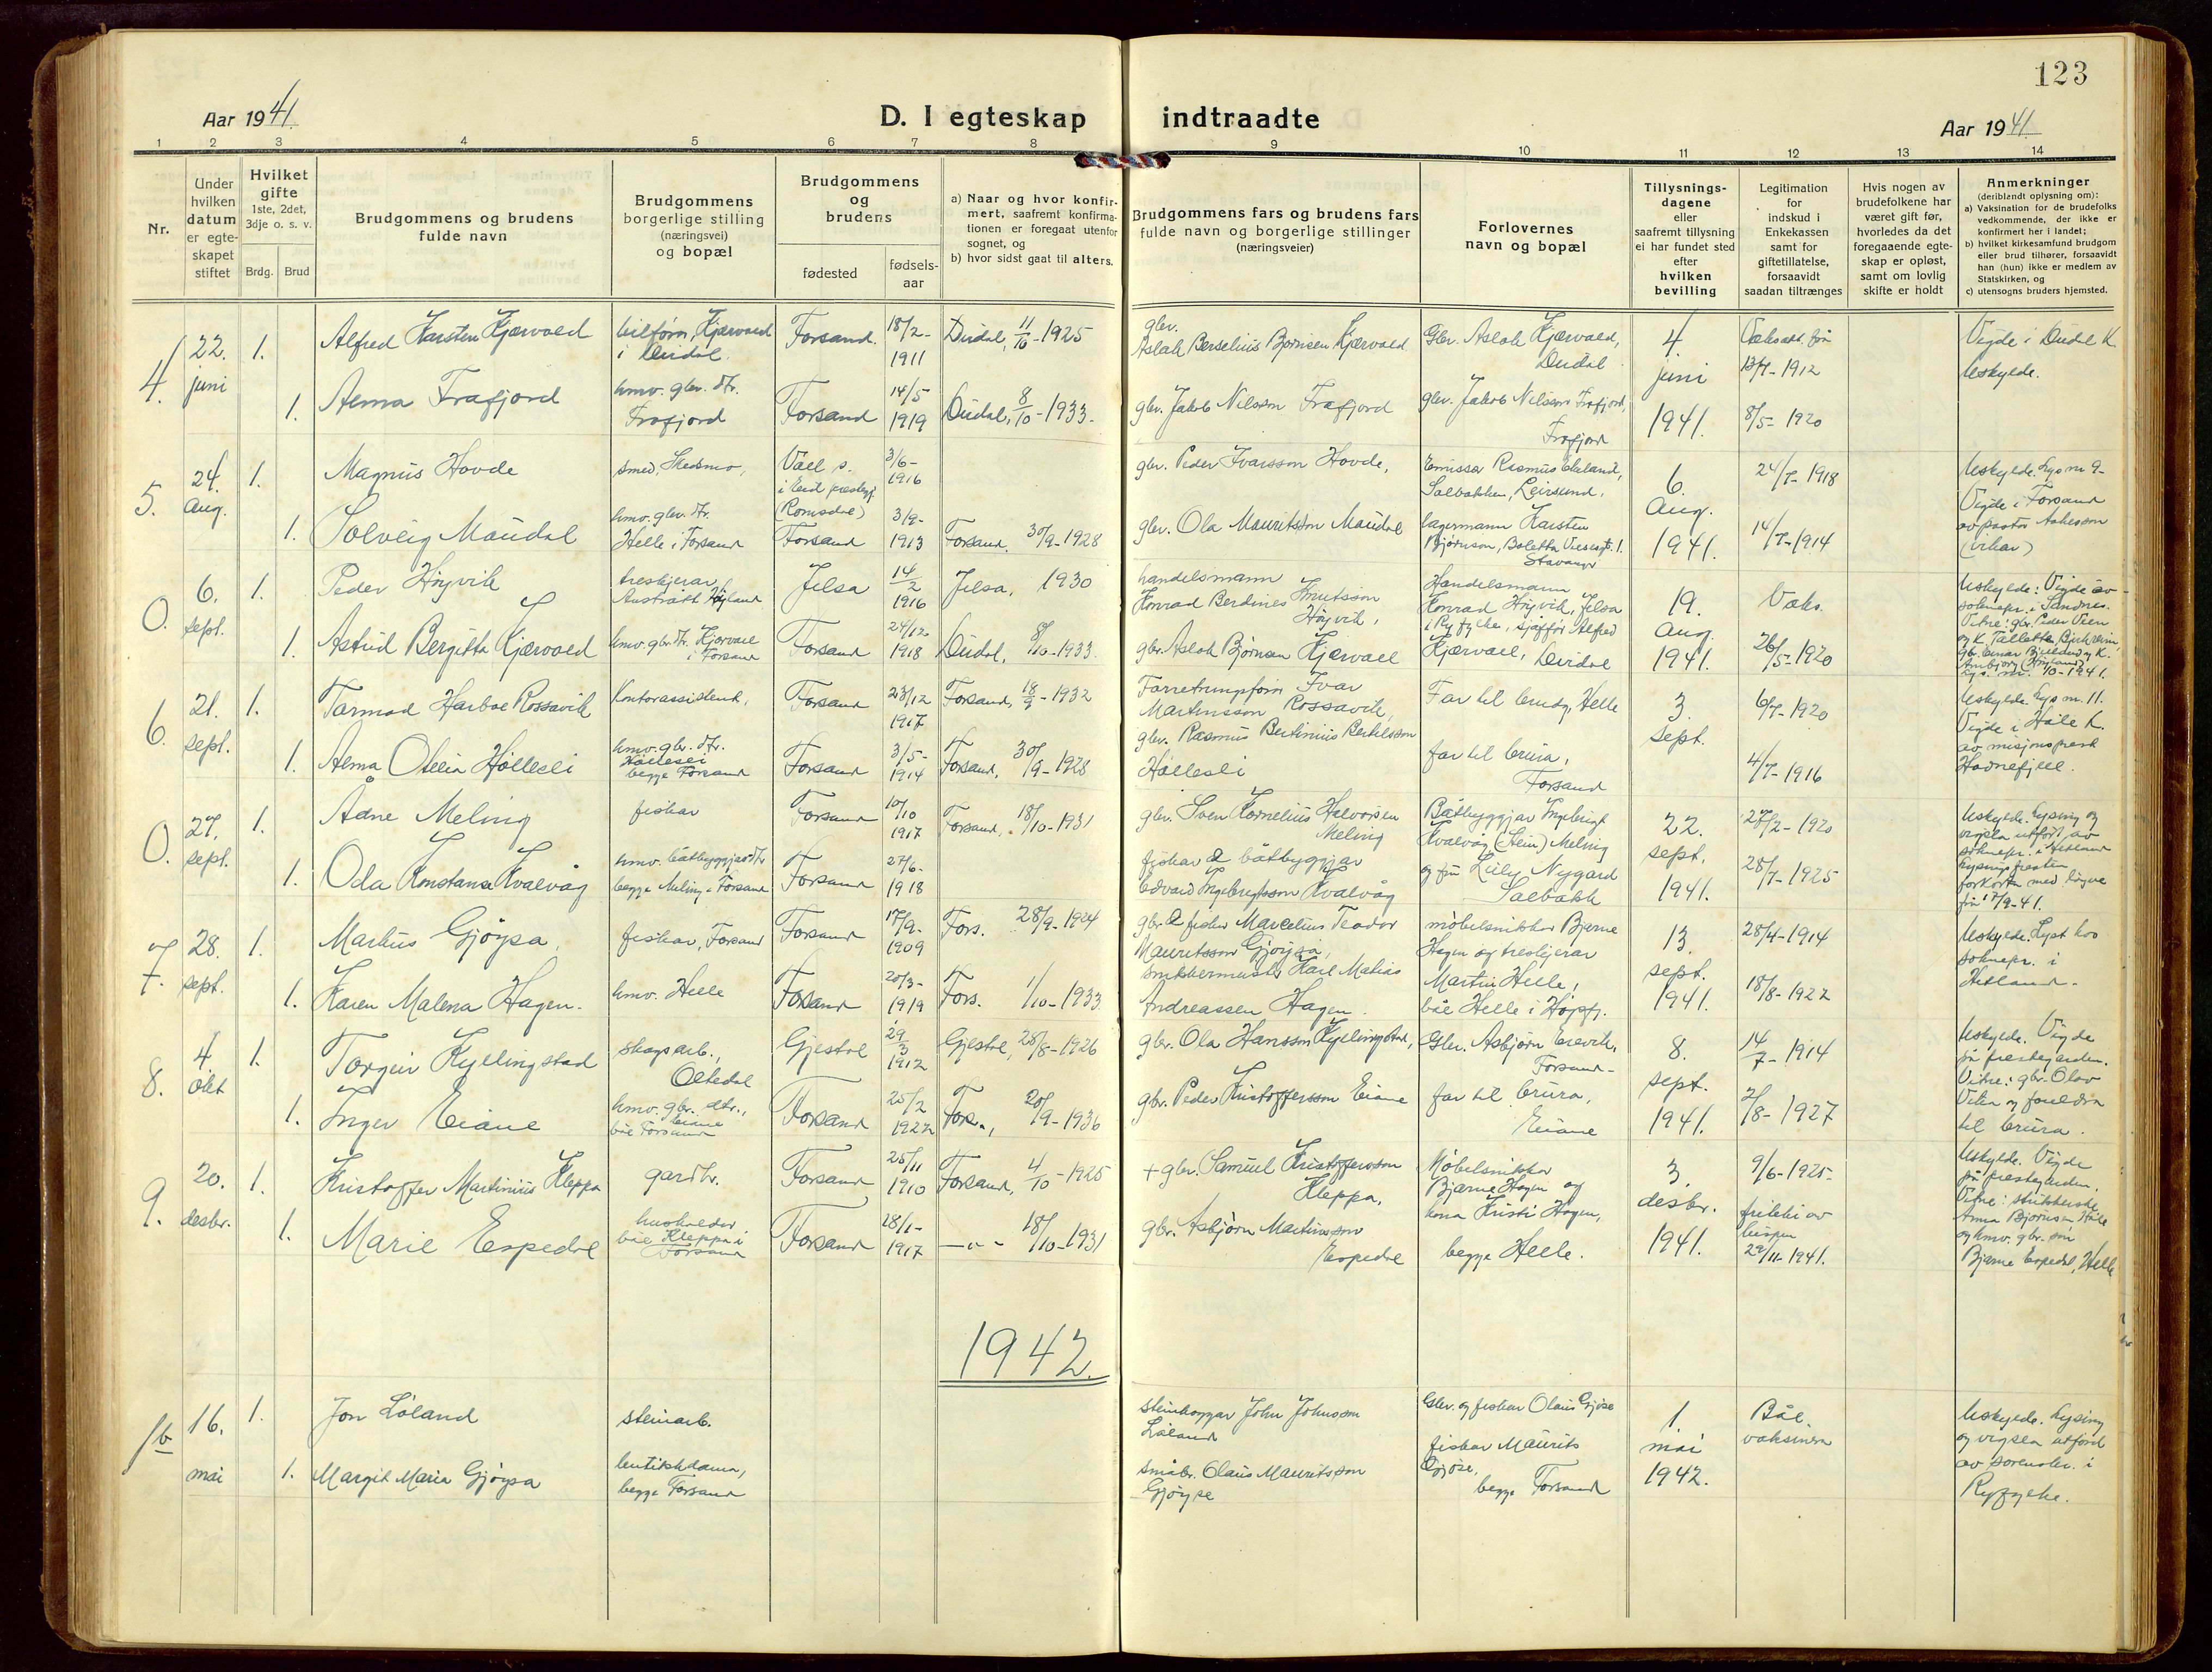 123
Aar 1941.
D. I egteskap indtraadte
Aar 1941
1 2 3 4 5 6 7 8 9 10 11 12 13 14
Nr.
Under
hvilken
datum
er egte-
skapet
stiftet
Hvilket
gifte
1ste, 2det,
3dje o. s. v.
Brdg. Brud
Brudgommens og brudens
fulde navn
Brudgommens
borgerlige stilling
(næringsvei)
og bopæl
Brudgommens
og
brudens
fødested
fødsels-
aar
a) Naar og hvor konfir-
mert, saafremt konfirma-
tionen er foregaat utenfor
sognet, og
b) hvor sidst gaat til alters.
Brudgommens fars og brudens fars
fulde navn og borgerlige stillinger
(næringsveier)
Forlovernes
navn og bopæl
Tillysnings-
dagene
eller
saafremt tillysning
ei har fundet sted
efter
hvilken
bevilling
Legitimation
for
indskud i
Enkekassen
samt for
giftetillatelse,
forsaavidt
saadan tiltrænges
Hvis nogen av
brudefolkene har
været gift før,
hvorledes da det
foregaaende egte-
skap er opløst,
samt om lovlig
skifte er holdt
Anmerkninger
(deriblandt oplysning om):
a) Vaksination for de brudefolks
vedkommende, der ikke er
konfirmert her i landet;
b) hvilket kirkesamfund brudgom
eller brud tilhører, forsaavidt
han (hun) ikke er medlem av
Statskirken, og
c) utensogns bruders hjemsted.
4.
22.
juni
1.
Alfred Karsten Kjærvold
Forsand.
18/2-
1911
Dirdal, 11/10-1925
gbr.
Aslak Berselius Bjørnsen Kjærvold
Gbr. Aslak Kjærvold,
Dirdal
4.
juni
1941.
13/7-1912
Vigde i Dirdal K.
Uskylde.
1.
Alma Frafjord
hmv. gbr. dtr.
Frafjord
Forsand
14/5
1919
Dirdal, 8/10-1933.
gbr. Jakob Nilsson Frafjord
gbr. Jakob Nilsson Frafjord,
Frafjord
8/5-1920
5.
24.
aug.
1.
Magnus Hovde
smed, Skedsmo,
3/6-
1916
(Romsdal)
gbr. Peder Ivarsson Hovde,
Leirsund.
6.
aug.
1941.
24/7-1918
Uskylde. Lys nr 9-
Vigde i Forsand
(vikar)
1.
Solveig Maudal
hmv. gbr. dtr.
Helle i Forsand
Forsand
3/9-
1913
Forsand. 30/9-1928
gbr. Ola Mauritsson Maudal
lagermann Karsten
Stavanger
14/7-1914
0.
6.
sept.
1.
Peder Høyvik
Jelsa
14/2
1916
Jelsa, 1930
handelsmann
Konrad Berdines Knutsson
Høyvik,
Handelsmann
Konrad Høyvik, Jelsa
i Ryfylke, sjåfør Alfred
Kjærvoll, Dirdal
19.
aug.
1941.
Vaks.
1.
Astrid Bergitta Kjærvold
hmv. gbr. dtr. Kjærvoll
i Forsand
Forsand
24/12
1918
Dirdal, 8/10-1933.
gbr. Aslak Bjørnsen Kjærvoll
26/5-1920
6.
21.
sept.
1.
Tormod Harboe Rossavik
Kontorassistent,
Forsand
23/12
1917
Forsand, 18/9-1932
Ivar
Martinsson Rossavik,
Far til brudg, Helle
3.
sept.
6/7-1920
Uskylde. Lys nr. 11.
Vigde i Høle K.
av misjonsprest
Hodnefjell.
1.
Alma Otelia Hølleslі
hmv. gbr. dtr.
begge Forsand
Forsand
3/5-
1914
Forsand, 30/9-1928
gbr. Rasmus Bertinius Bertelsson
far til brura,
Forsand
4/7-1916
0.
27.
sept.
1.
Ådne Meling
fiskar
Forsand
10/10
1917
Forsand, 18/10-1931
gbr. Sven Kornelius Halvorsen
Meling
Båtbyggjar Ingebrigt
Kvalvåg (Stein) Meling
22.
sept.
1941.
27/2-1920
1.
Oda Konstanse Kvalvåg
hmv. båtbyggjardtr
begge Meling i Forsand
Forsand
27/6-
1918
fiskar & båtbyggjar
Edvard Ingebregtsson Kvalvåg
og fru Lilly Nygard
Solbakk
28/7-1925
7.
28.
sept.
1.
Markus Gjøysa,
fiskar, Forsand
Forsand
17/9-
1909
Fors. 28/9-1924
gbr. & fisker Marcelius Teodor
Mauritsson Gjøysa,
møbelsnikkar Bjarne
Hagen og treskjerar
Martin Helle,
båe Helle i Høgsfj.
13
sept.
1941.
28/4-1914
Uskylde. Lyst hos
soknepr. i
Hetland.
1.
Karen Malena Hagen.
hmv. Helle
Forsand
20/3-
1919
Fors. 1/10-1933
snikkermeister Karl Matias
Andreassen Hagen.
18/8-1922
8.
4.
okt
1.
Torgeir Kyllingstad
skogsarb.,
Oltedal
Gjestal
29/3
1912
Gjestal, 28/8-1926
gbr. Ola Hansson Kyllingstad,
Gbr. Asbjørn Erevik,
Forsand-
8.
sept.
1941.
14/7-1914
Uskylde. Vigde
på prestegarden.
Vitne: gbr. Olav
og foreldra
til brura.
1.
Inger Eiane
hmv. gbr. dtr.,
Eiane
båe Forsand
Forsand
25/2
1922
Fors., 20/9-1936
gbr. Peder Kristoffersson Eiane
far til brura,
Eiane
2/8-1927
9.
20.
desbr.
1.
Kristoffer Martinius Kleppa
gardbr.
Forsand
25/11
1910
Forsand, 4/10-1925
+ gbr. Samuel Kristoffersson
Kleppa,
Møbelsnikkar
Bjarne Hagen og
kona Kristi Hagen,
begge Helle.
3.
desbr.
1941.
9/6-1925-
Uskylde. Vigde
på prestegarden.
Anna Bjørnsen, Høle
og hmv. gbr. son
Bjarne Espedal, Helle
1.
Marie Espedal
husholder
båe Kleppa i
Forsand
Forsand
28/1-
1917
-"- 18/10-1931
gbr. Asbjørn Martinsson
Espedal
fritekі av
bispen
29/11-1941.
1942.
1b
16.
mai
1.
Jon Løland
steinarb.
steinhoggar John Johnsson
Løland
Gbr. og fiskar Olaus Gjøse
1.
mai
1942.
Båe.
vaksinera
Uskylde. Lysing
og vigsla utførd
av sorenskr. i
Ryfylke.
1.
Margit Maria Gjøysa
butikkdama,
begge Forsand
småbr. Olaus Mauritsson
Gjøyse
fiskar Maurits
Gjøse,
begge Forsand